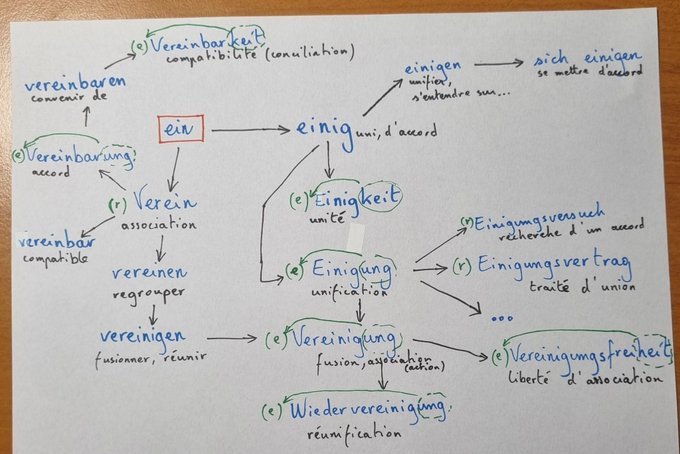 (e) Vereinbarkeit
compatibilité (conciliation)
vereinbaren
convenir de
einigen
unifier,
s'entendre sur...
sich einigen
se mettre d'accord
ein
einig uni, d'accord
(e) Vereinbarung
accord
(r) Verein
association
(e) Einigkeit
unité
vereinbar
compatible
(r) Einigungsversuch
recherche d'un accord
vereinen
regrouper
(e) Einigung
unification
(r) Einigungsvertrag
traité d'union
...
vereinigen
fusionner, réunir
(e) Vereinigung
fusion, association
(action)
(e) Vereinigungsfreiheit
liberté d'association
(e) Wiedervereinigung
réunification